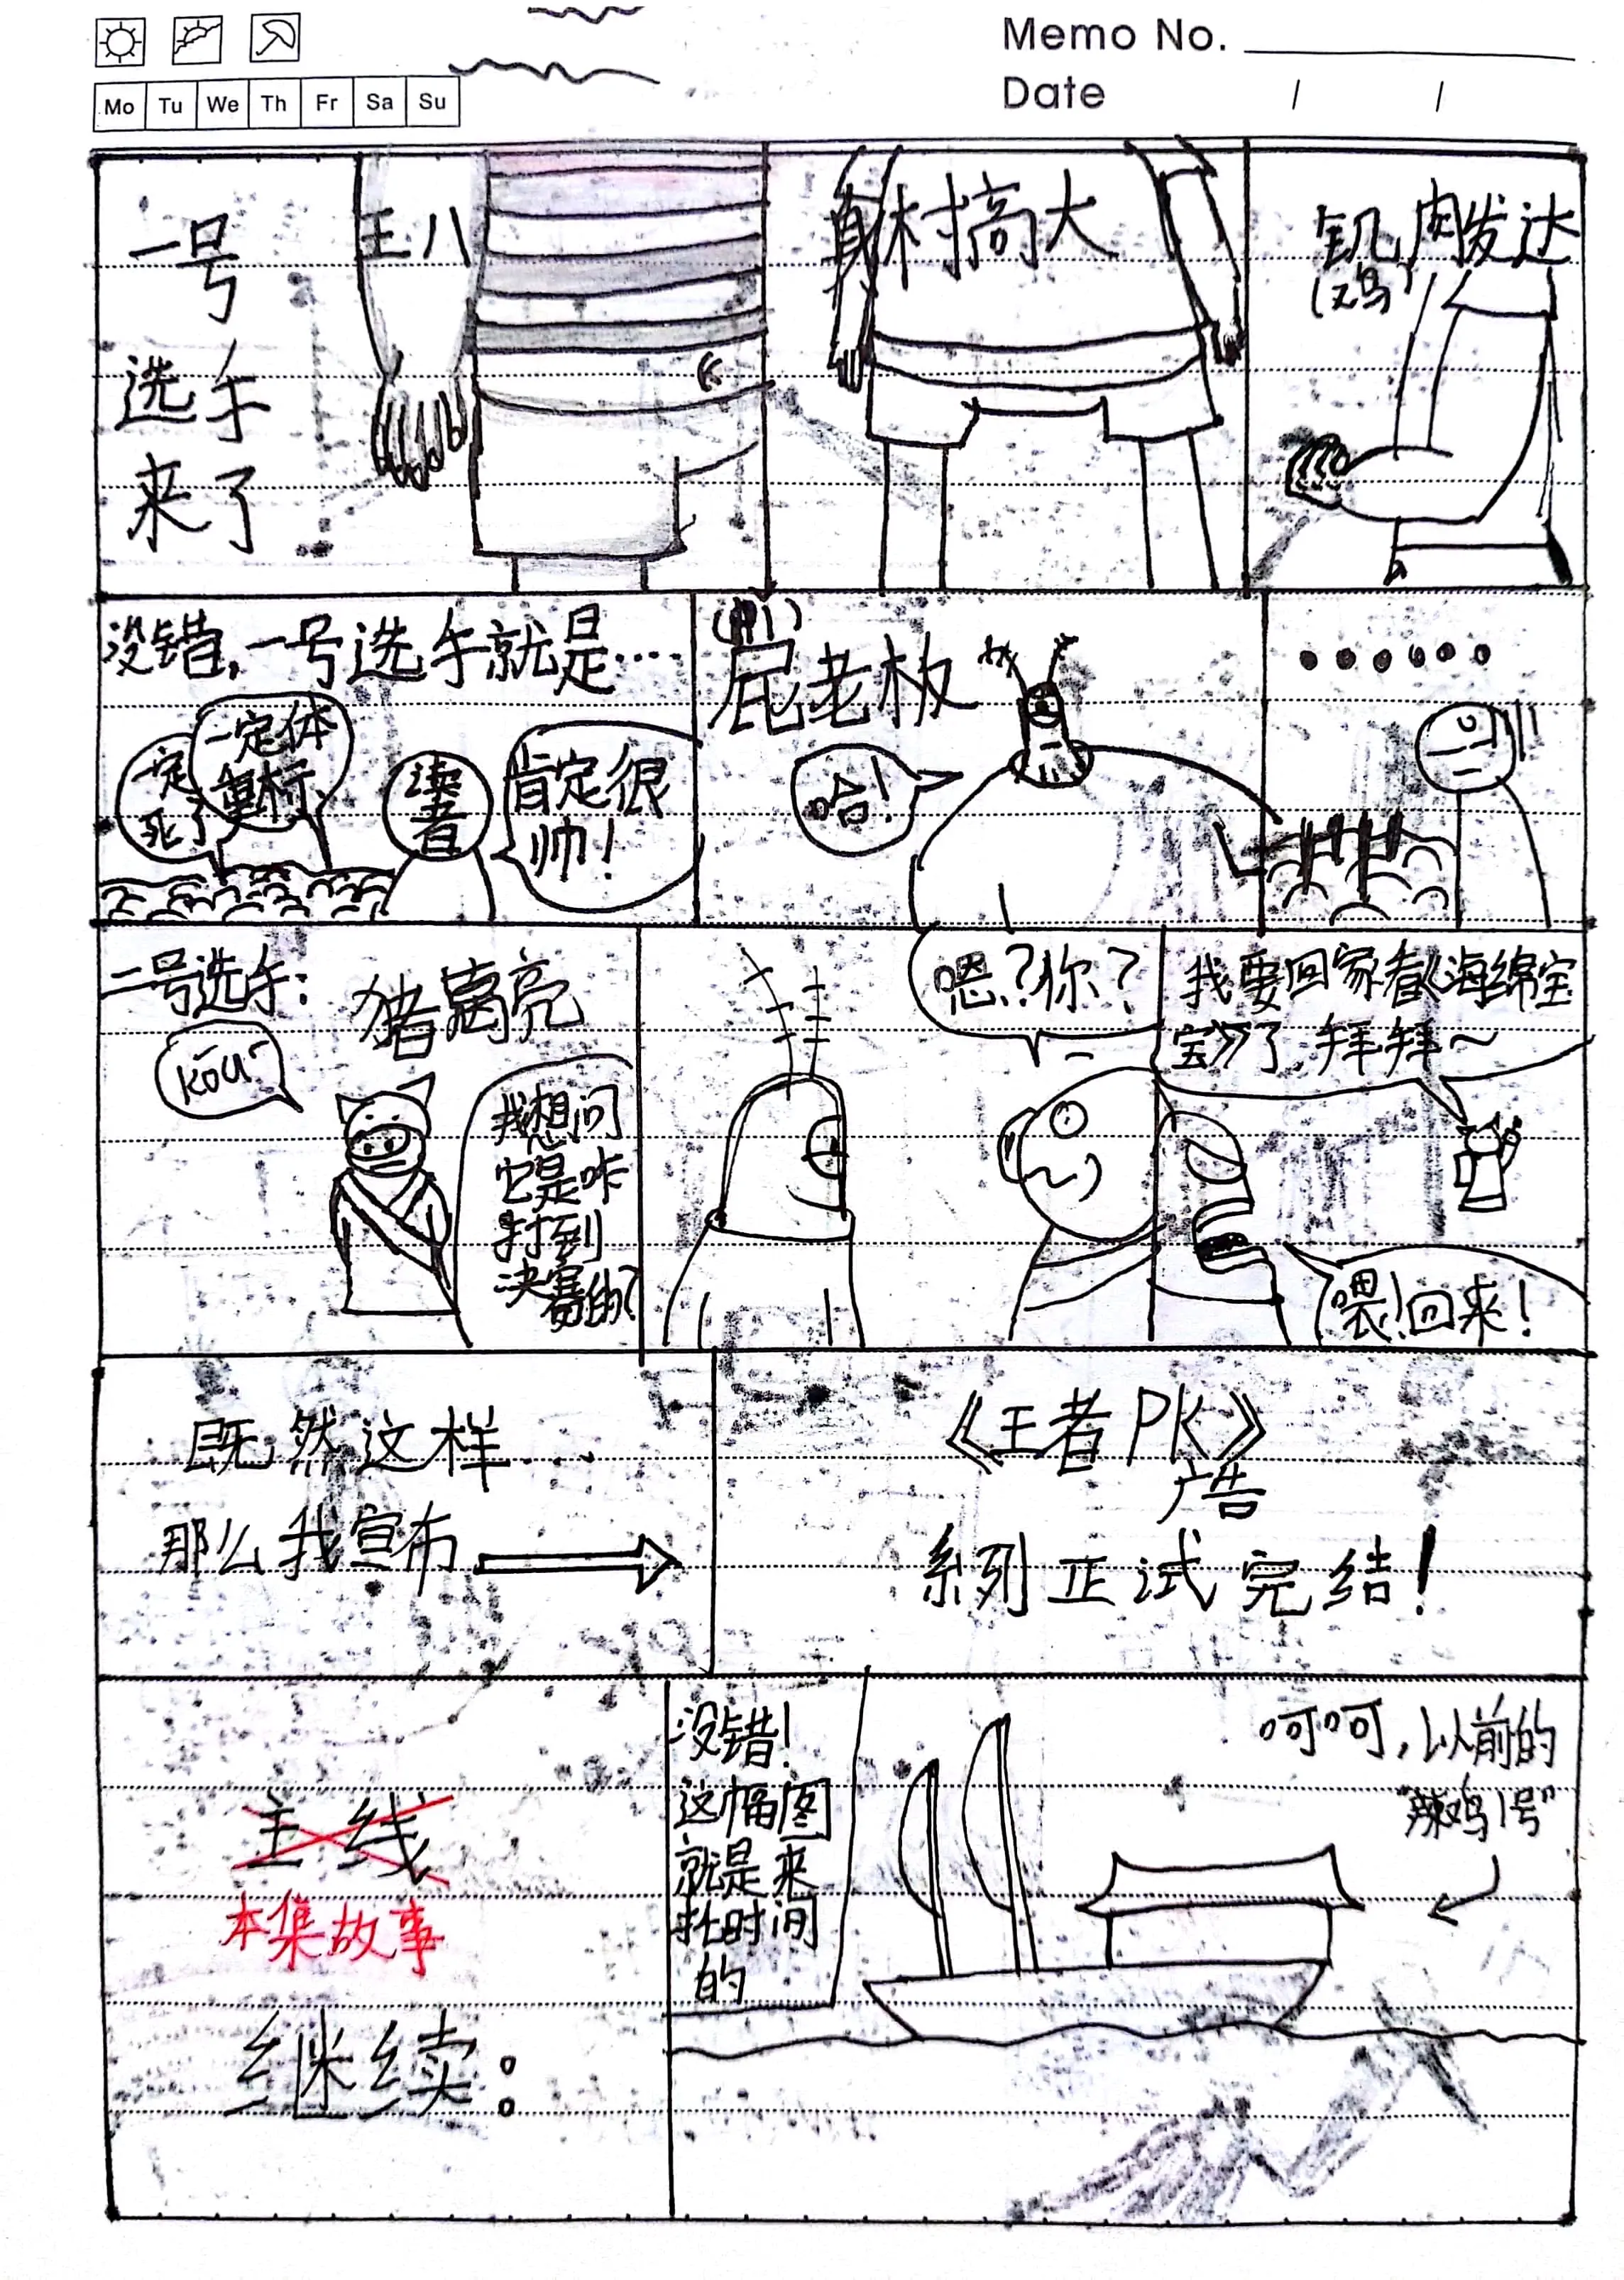 Memo No.
Date / /
Mo Tu We Th Fr Sa Su
一号
选手
来了
王八
身材搞大
肌肉发达
(鸡)
没错,一号选手就是……
一定
死了
一定体
重标
读者
肯定很
帅!
屁老板
哈!
······
二号选手:
猪窝亮
kōu
我想问
它是咋
打到
决赛的?
嗯?你?
我要回家看《海绵宝
宝》了,拜拜~
喂!回来!
既然这样...
那么我宣布
《王者PK》
广告
系列正式完结!
主线
本集故事
继续:
没错!
这幅图
就是来
拖时间
的
呵呵,以前的
"辣鸡1号"